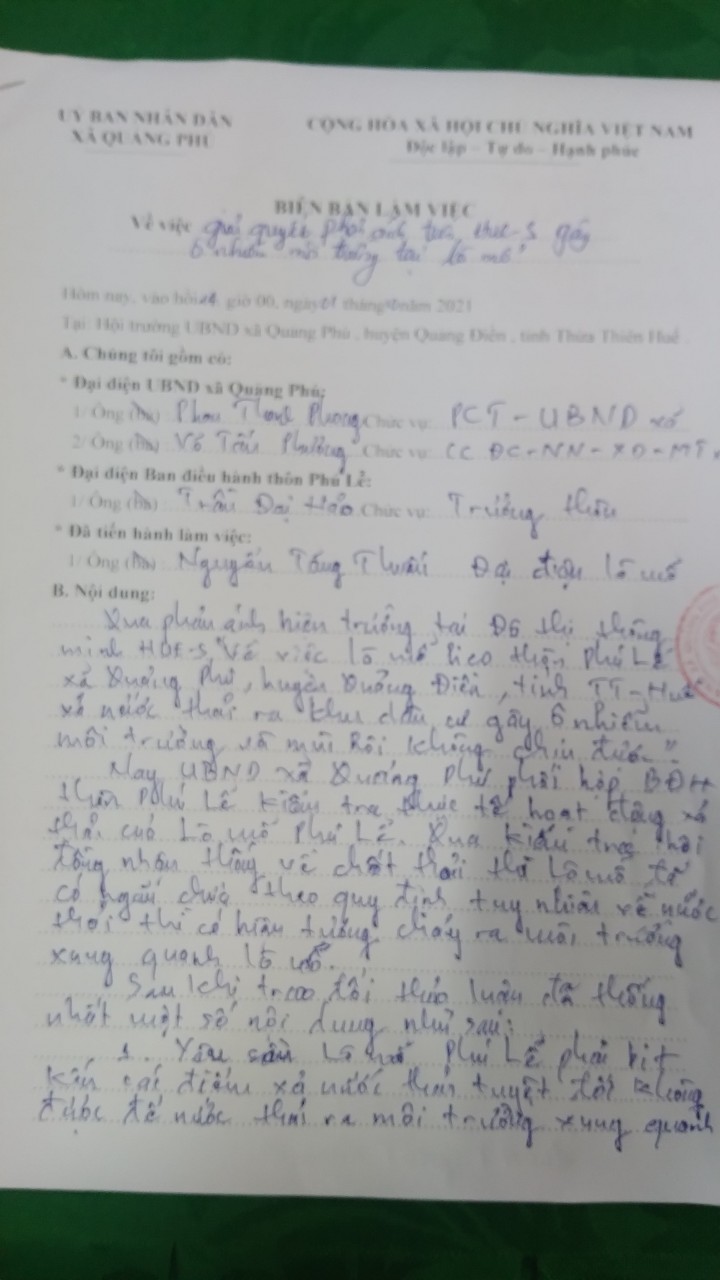 ỦY BAN NHÂN DÂN
XÃ QUẢNG PHÚ
CỘNG HÒA XÃ HỘI CHỦ NGHĨA VIỆT NAM
Độc lập – Tự do – Hạnh phúc
BIÊN BẢN LÀM VIỆC
Về việc giải quyết phản ánh trên Hue-S gây
ô nhiễm môi trường tại lò mổ
Hôm nay, vào hồi 14 giờ 00, ngày 01 tháng năm 2021
Tại: Hội trường UBND xã Quảng Phú, huyện Quảng Điền, tỉnh Thừa Thiên Huế.
A. Chúng tôi gồm có:
* Đại diện UBND xã Quảng Phú:
1/ Ông (bà) Phan Thanh Chức vụ: PCT - UBND xã
2/ Ông (bà) Võ Chức vụ: CC ĐC-NN-XD-MT
* Đại diện Ban điều hành thôn Phú Lễ:
1/ Ông (bà) Trần Đại Hảo Chức vụ: Trưởng thôn
* Đã tiến hành làm việc:
1/ Ông (bà) Nguyễn Tống Thuấn Đại diện lò mổ
B. Nội dung:
Qua phản ánh hiện trường tại Đô thị thông
minh HUE-S "Về việc lò mổ heo thôn Phú Lễ
xã Quảng Phú, huyện Quảng Điền, tỉnh TT-Huế
xả nước thải ra khu dân cư gây ô nhiễm
môi trường và mùi hôi không chịu được"
Nay UBND xã Quảng Phú phối hợp BĐH
thôn Phú Lễ kiểm tra thực tế hoạt động xả
thải của Lò mổ Phú Lễ. Qua kiểm tra hai
đồng nhân thống về chất thải thì Lò mổ đã
có ngăn chứa theo quy định tuy nhiên về nước
thải thì có hiện tượng chảy ra môi trường
xung quanh lò mổ.
Sau khi trao đổi thảo luận đã thống
nhất một số nội dung như sau:
1. Yêu cầu Lò mổ Phú Lễ phải bịt
kín các điểm xả nước thải tuyệt đối không
được để nước thải ra môi trường xung quanh